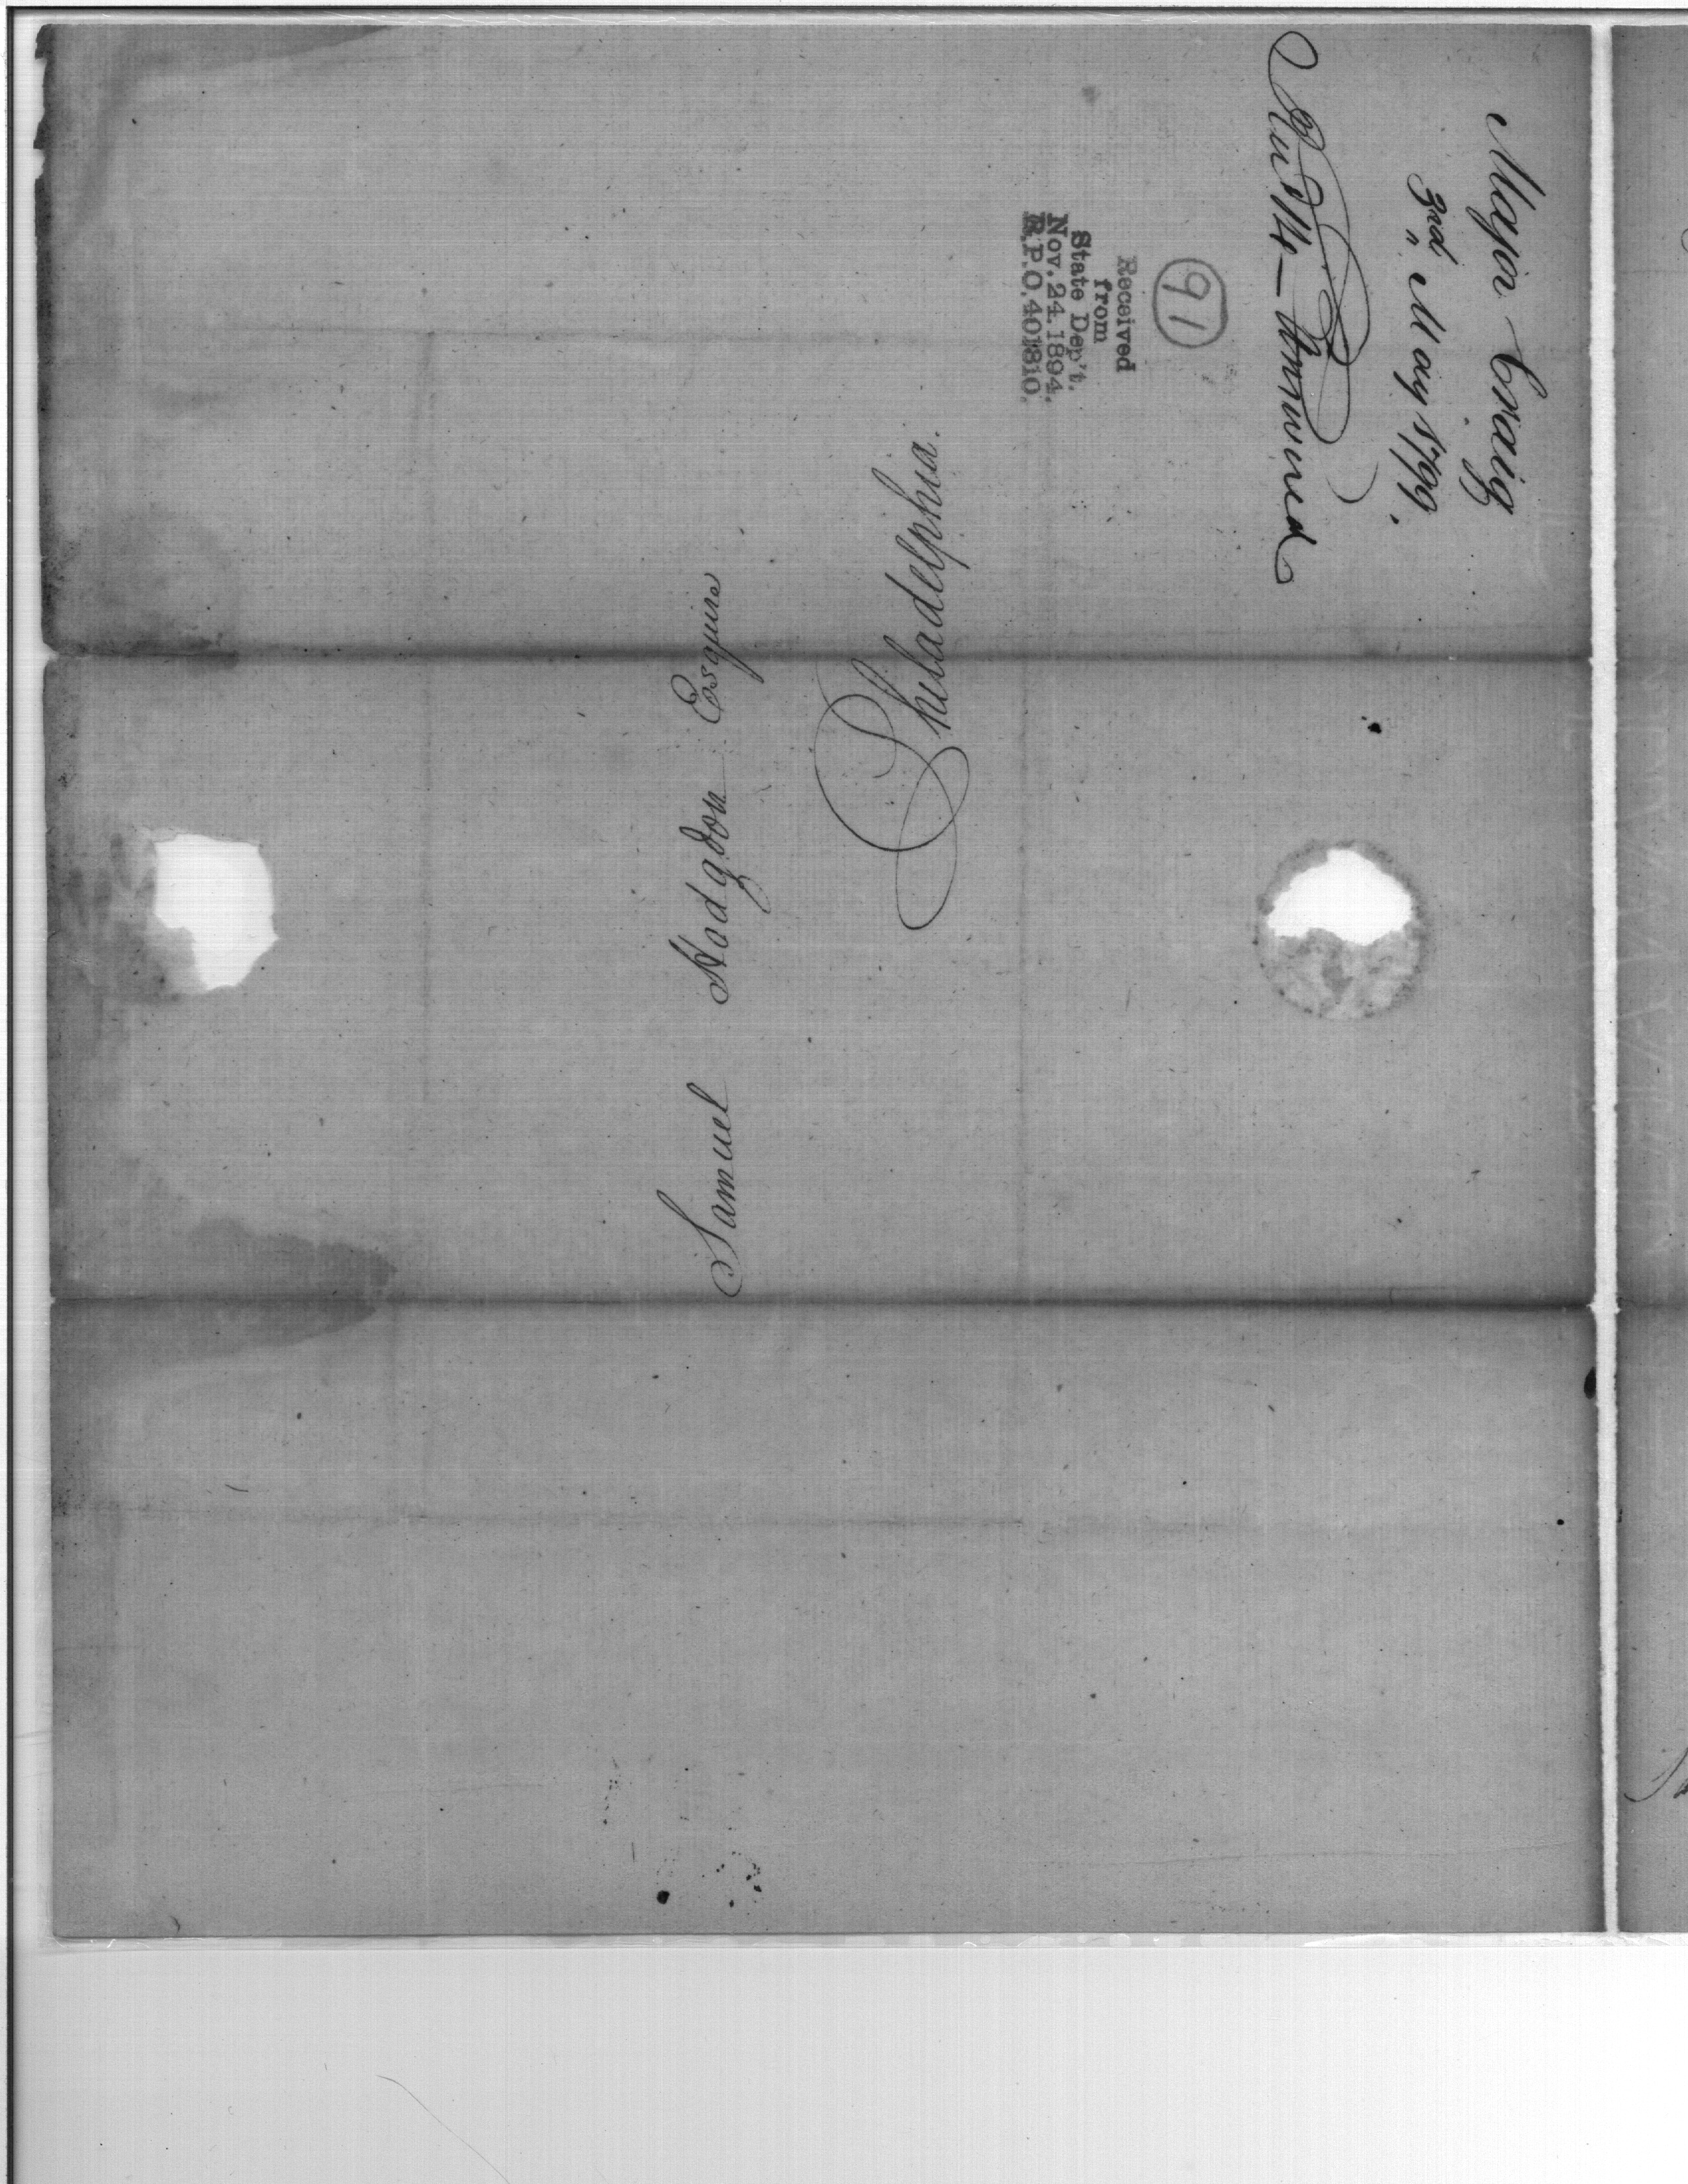 Major Craig
3rd May 1799.
Answered
91
Received
from
State Dep't.
Nov. 24. 1894.
R.P.O. 401810.
Samuel Hodgdon Esquire
Philadelphia.